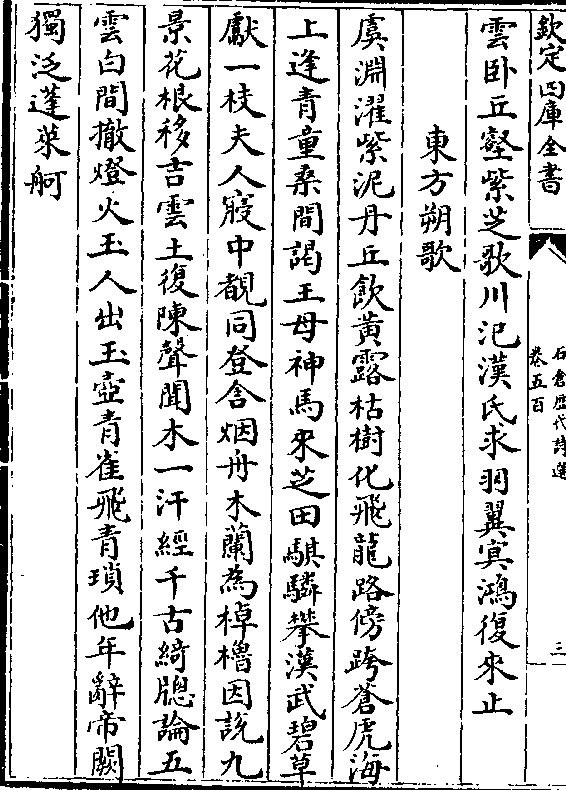 欽定四庫全書
石倉歷代詩選
卷五百
三
雲卧丘壑紫芝歌川汜漢氏求羽翼寘鴻復來止
東方朔歌
虞淵濯紫泥丹丘飲黄露枯樹化飛龍路傍跨蒼虎海
上逢青童桑間謁王母神馬來芝田騏驎攀漢武碧草
獻一枝夫人寢中覩同登含烟舟木蘭為棹櫓因説九
景花根移吉雲土復陳聲聞木一汗經千古綺牕論五
雲白間撤燈火玉人出玉壺青雀飛青瑣他年辭帝闕
獨泛蓬萊舸